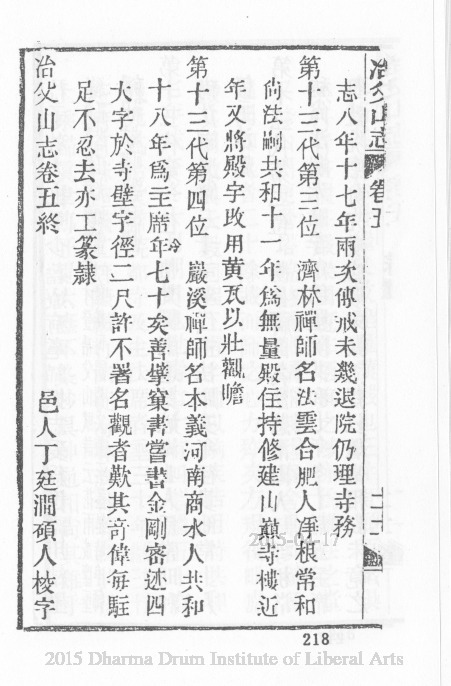 冶父山志 卷五 二十一
志八年十七年兩次傳戒未幾退院仍理寺務
第十三代第三位 濟林禪師名法雲合肥人淨根常和
尙法嗣共和十一年爲無量殿住持修建山巔寺樓近
年又將殿宇改用黃瓦以壯觀瞻
第十三代第四位 巖溪禪師名本義河南商水人共和
十八年爲主席今年七十矣善擘窠書嘗書金剛密迹四
大字於寺壁字徑二尺許不署名觀者歎其奇偉每駐
足不忍去亦工篆隸
冶父山志卷五終 邑人丁廷澗碩人校字
218
2015-04-17
2015 Dharma Drum Institute of Liberal Arts